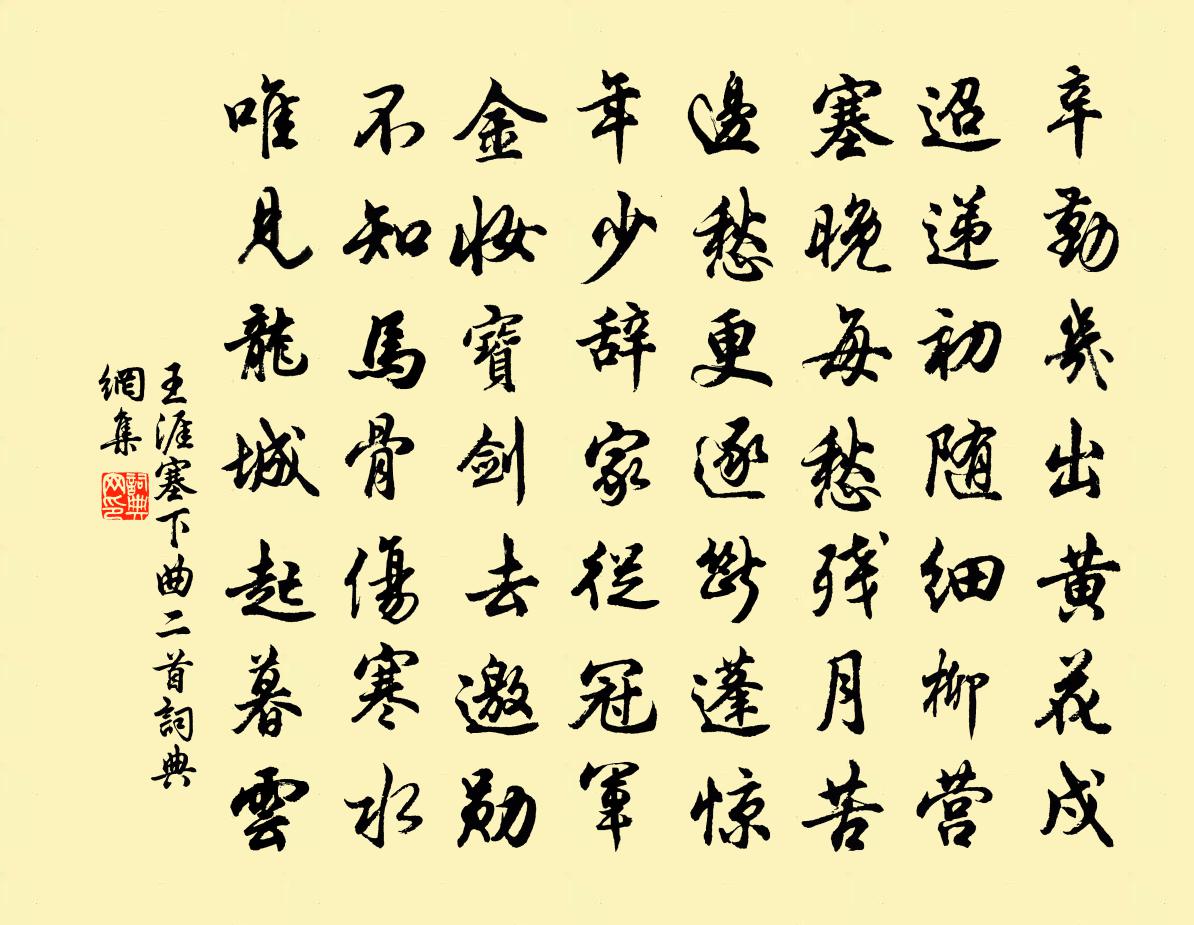 辛勤幾出黄花戍
迢递初随细柳营
塞晚每愁残月苦
邊愁更逐斷蓬惊
年少辞家從冠軍
金妝寶劍去邀勛
不知馬骨傷寒水
唯見龍城起暮雲
王涯塞下曲二首詞典
網集
詞典
网印